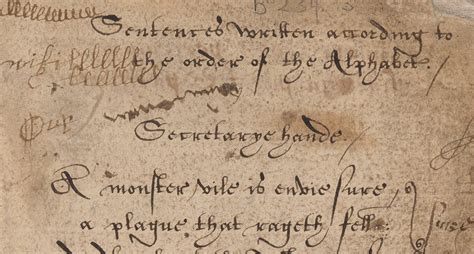 B 234.
Sentences written according to
the order of the Alphabet.
Our
Secretarye hande.
A monster vile is envie sure,
a plague that rageth fell:
sure